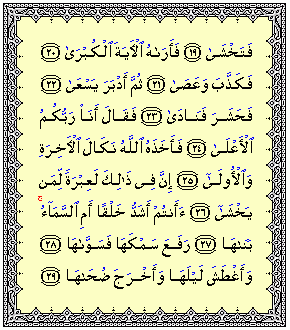 فَتَخْشَىٰ ﴿١٩﴾ فَأَرَىٰهُ ٱلْأٓيَةَ ٱلْكُبْرَىٰ ﴿٢٠﴾
فَكَذَّبَ وَعَصَىٰ ﴿٢١﴾ ثُمَّ أَدْبَرَ يَسْعَىٰ ﴿٢٢﴾
فَحَشَرَ فَنَادَىٰ ﴿٢٣﴾ فَقَالَ أَنَا۠ رَبُّكُمُ
ٱلْأَعْلَىٰ ﴿٢٤﴾ فَأَخَذَهُ ٱللَّهُ نَكَالَ ٱلْأٓخِرَةِ
وَٱلْأُولَىٰٓ ﴿٢٥﴾ إِنَّ فِى ذَٰلِكَ لَعِبْرَةً لِّمَن
يَخْشَىٰٓ ﴿٢٦﴾ ءَأَنتُمْ أَشَدُّ خَلْقًا أَمِ ٱلسَّمَآءُ ۚ
بَنَىٰهَا ﴿٢٧﴾ رَفَعَ سَمْكَهَا فَسَوَّىٰهَا ﴿٢٨﴾
وَأَغْطَشَ لَيْلَهَا وَأَخْرَجَ ضُحَىٰهَا ﴿٢٩﴾